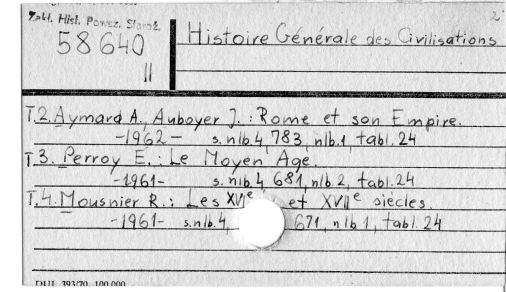 Zakł. Hist. Powsz. Starož.
2
58640
II
Histoire Générale des Civilisations
T.2. Aymard A., Auboyer J.: Rome et son Empire.
-1962- s. nlb.4, 783, nlb.1, tabl. 24
T.3. Perroy E.: Le Moyen Age.
-1961- s. nlb. 4, 681, nlb 2, tabl. 24
T.4. Mousnier R.: Les XVIe et XVIIe siècles.
-1961- s. nlb. 4, 671, nlb 1, tabl. 24
DUL 393/70 100.000